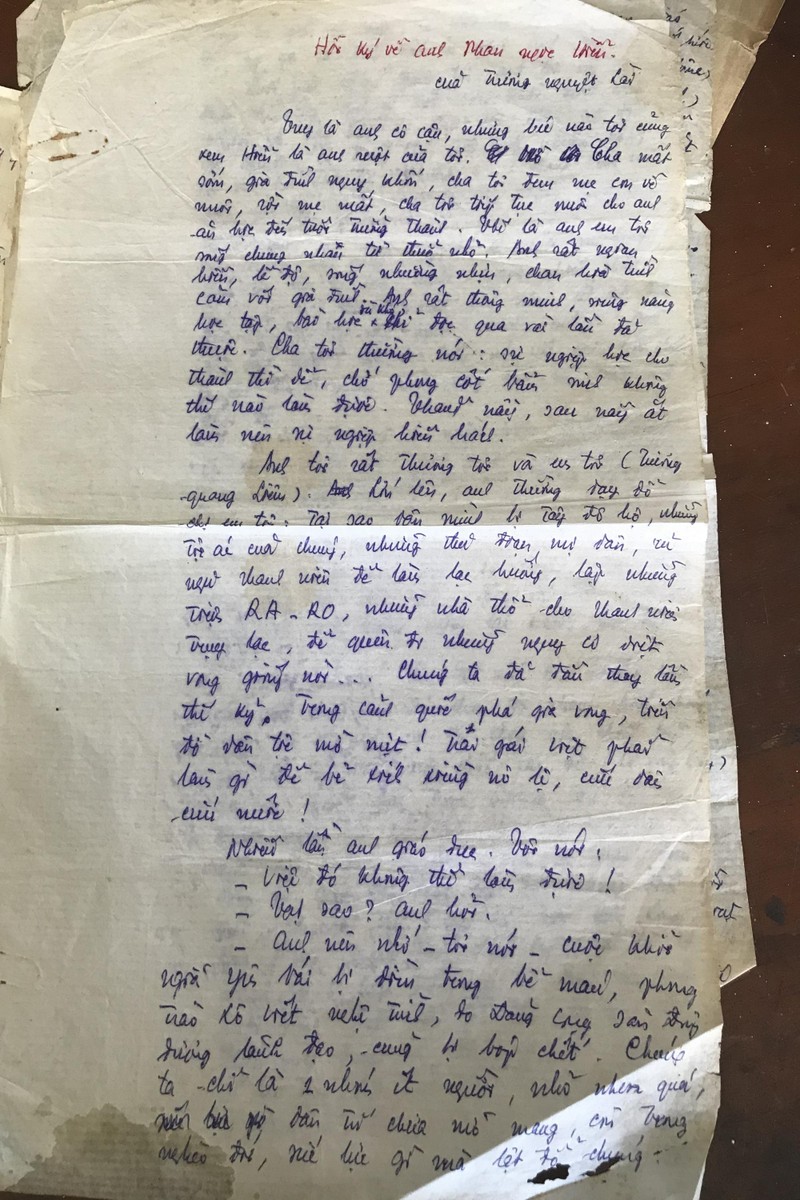 Hồi ký về anh Phan ngọc Hiển.
của Trương nguyệt
Tuy là anh cô cậu, nhưng lúc nào tôi cũng
xem Hiển là anh ruột của tôi. Cha mất
sớm, gia đình nguy khốn, cha tôi đem mẹ con về
nuôi, rồi mẹ mất, cha tôi tiếp tục nuôi cho anh
ăn học đến tuổi trưởng thành. Thế là anh em tôi
sống chung nhau từ thuở nhỏ. Anh rất ngoan
hiền, lễ độ, sống nhường nhịn, chan hòa tình
cảm với gia đình. Anh rất thông minh, siêng năng
học tập, bài học đọc qua vài lần đã
thuộc. Cha tôi thường nói: sự nghiệp học cho
thành thì dễ, chớ phong cốt bẩm sinh không
thể nào làm được. Thanh này, sau này ắt
làm nên sự nghiệp hiển hách.
Anh tôi rất thương tôi và em tôi (Trương
quang Liêm). Lớn lên, anh thường dạy dỗ
chị em tôi: Tại sao dân mình bị Tây đô hộ, những
tội ác của chúng, những thủ đoạn mị dân, ru
ngủ thanh niên để làm lạc hướng, lập những
tiệm RA-RO, những nhà thổ cho thanh niên
trụy lạc, để quên đi những nguy cơ diệt
vong giống nòi... Chúng ta đã đau thay lâu
thế kỷ, trong cảnh quốc phá gia vong, trình
độ dân trí mờ mịt! Trai gái Việt phải
làm gì để bẻ xích xiềng nô lệ, cứu dân
cứu nước!
Nhiều lần anh giáo dục. Tôi nói:
- Việc đó không thể làm được!
- Vậy sao? anh hỏi.
- Anh nên nhớ - tôi nói - cuộc khởi
nghĩa yên bái bị dìm trong bể máu, phong
trào Xô viết nghệ tĩnh, do Đảng cộng sản đông
dương lãnh đạo, cũng bị bóp chết. Chúng
ta chỉ là 1 nhóm ít người, nhỏ nhen quá,
dân trí chưa mở mang, còn trong
nghèo đói, sức lực gì mà lật đổ chúng.